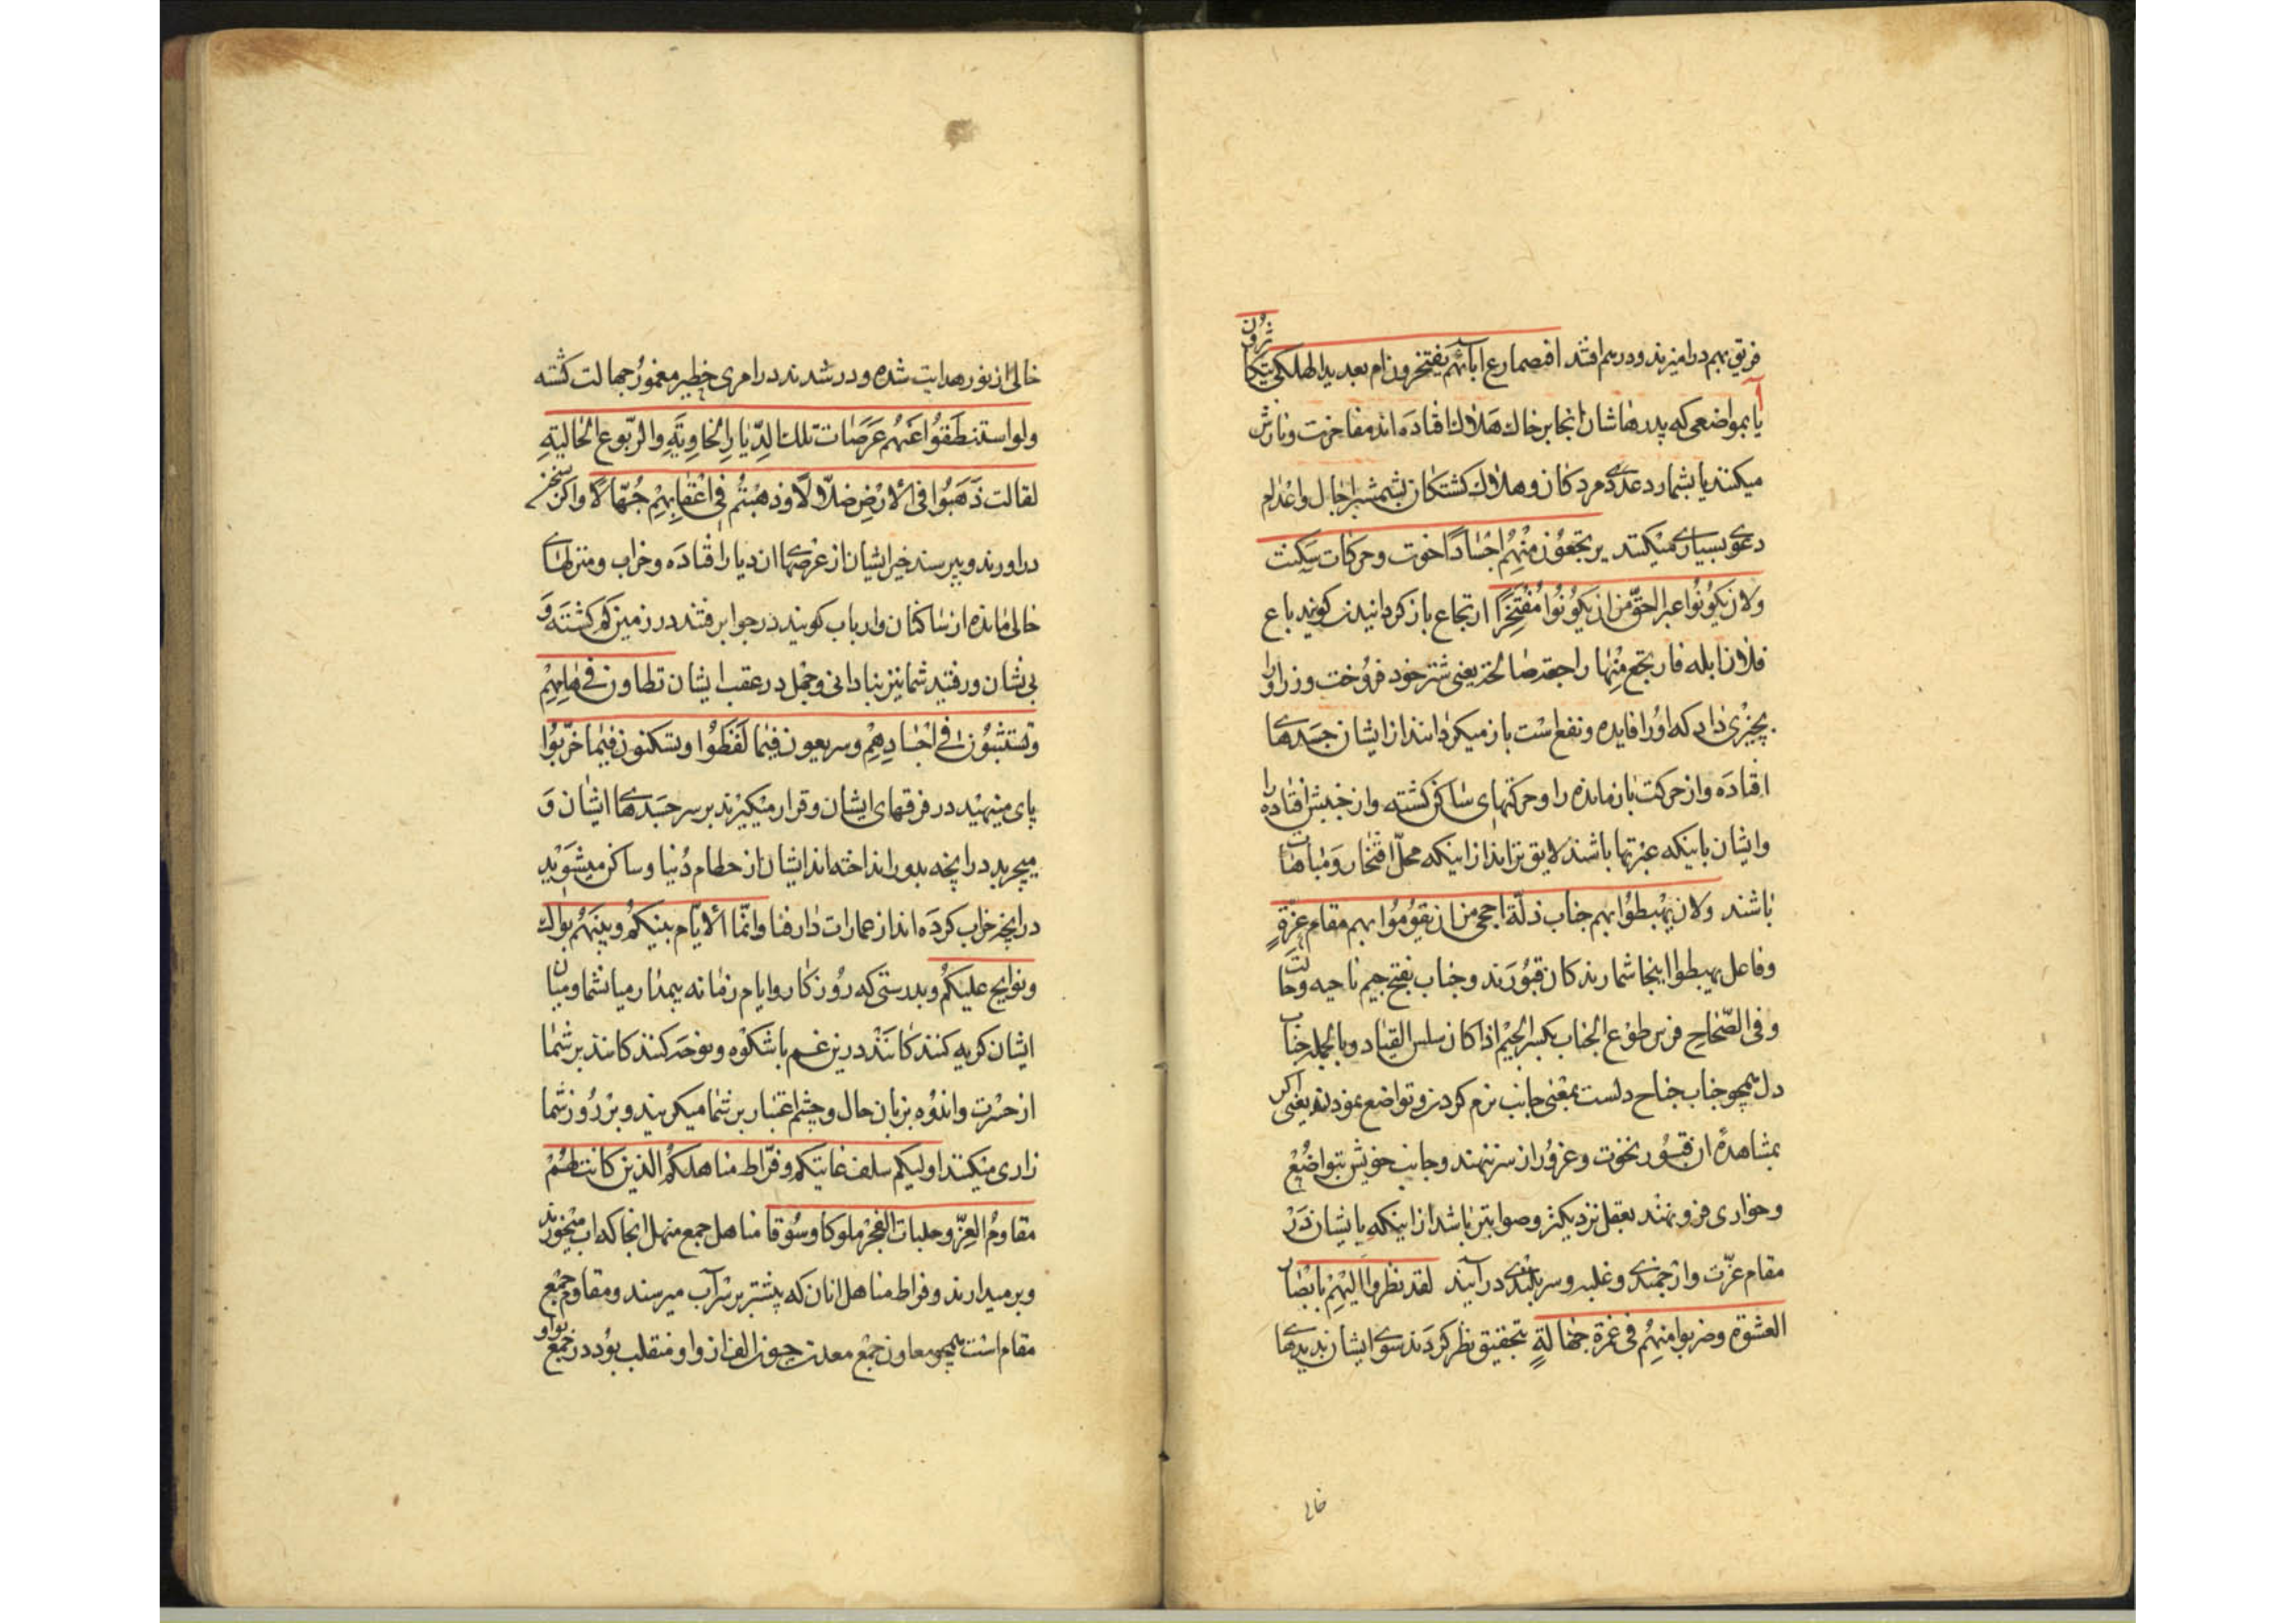 فریق بهم درامیزند و درهم افتند افبمصارع ابائهم یفتخرون ام بعدید الهلکی یتکاثرون
آیا بمواضعی که پدرهاشان انجا بر خاک هلاک افتاده اند مفاخرت و نازش
میکنند یا بشمارد عددی مردکان و هلاک کشتکان بشمشیر اجال و اعدام
دعوی بسیاری میکنند یرتجعون منهم اجسادا خوت و حرکات سکنت
ولان یکونوا عبرا احق من ان یکونوا مفتخرا ارتجاع باز کردانیدن کویند باع
فلان ابله فارتجع منها راجعة صالحة یعنی شتر خود فروخت و زر او را
بچیزی داد که او را فایده و نفع است باز میکردانند از ایشان جسدهای
افتاده و از حرکت باز مانده را و حرکتهای ساکن کشته و از جنبش افتاده را
و ایشان باینکه عبرتها باشند لایق ترانداز اینکه محل افتخار و مباهات
باشند ولان یهبطوا بهم جناب ذلة احجی من ان یقوموا بهم مقام عزة
و فاعل یهبطوا اینجا شمارندکان قبورند و جناب بفتح جیم ناحیه و جانب
و فی الصحاح فرس طوع الجناب بکسر الجیم اذا کان سلس القیاد و بالجمله جناب
دل همچو جناب جناح دلست بمعنی جانب نرم کردن و تواضع نمودن یعنی اکر
بمشاهدهٔ ان قبور نخوت و غرور از سر بنهند و جانب خویش بتواضع
و خواری فرو نهند بعقل نزدیکتر و صوابتر باشد از اینکه بایشان در
مقام عزت و ارجمندی و غلبه و سربلندی درآیند لقد نظروا الیهم بابصار
العشوة و ضربوا منهم فی غمرة جهالة بتحقیق نظر کردند سوی ایشان بدیدهای
خالی
خالی از نور هدایت شده و در شدند در امری خطیر مغمور جهالت کشته
ولو استنطقوا عنهم عرصات تلک الدیار الخاویة والربوع الخالیة
لقالت ذهبوا فی الارض ضلالا وذهبتم فی اعقابهم جهالا و اکر بسخن
دراورند و بپرسند خبر ایشان از عرصهای ان دیار افتاده و خراب و منزلهای
خالی مانده از ساکنان و ارباب کویند در جواب رفتند در زمین کم کشته و
بی نشان و رفتید شما نیز بنادانی و جهل در عقب ایشان تطاون فی هامهم
وتستثبتون فی اجسادهم وترتعون فیما لفظوا وتسکنون فیما خربوا
پای مینهید در فرقهای ایشان و قرار میکیرند بر سر جسدهای ایشان و
میچرید در انچه بدور انداخته اند ایشان از حطام دنیا و ساکن میشوید
در انچه خراب کرده اند از عمارات دار فنا وانما الایام بینکم وبینهم بواک
ونوایح علیکم و بدرستی که روزکار و ایام زمانه بیمدار میان شما و میان
ایشان کریه کنندکانند در نیز غم باشکوه و نوحه کنندکانند بر شما
از حسرت و اندوه بزبان حال و چشم اعتبار بر شما میکریند و بر روز شما
زاری میکنند اولیکم سلف غایتکم وفراط مناهلکم الذین کانت لهم
مقاوم العز وحلبات الفخر ملوکا وسوقا مناهل جمع منهل انجا که اب میخورند
و برمیدارند و فراط مناهل انان که پیشتر بر سر آب میرسند و مقاوم جمع
مقام است همچو معاون جمع معدن چون الف از واو منقلب بود در جمع بواو